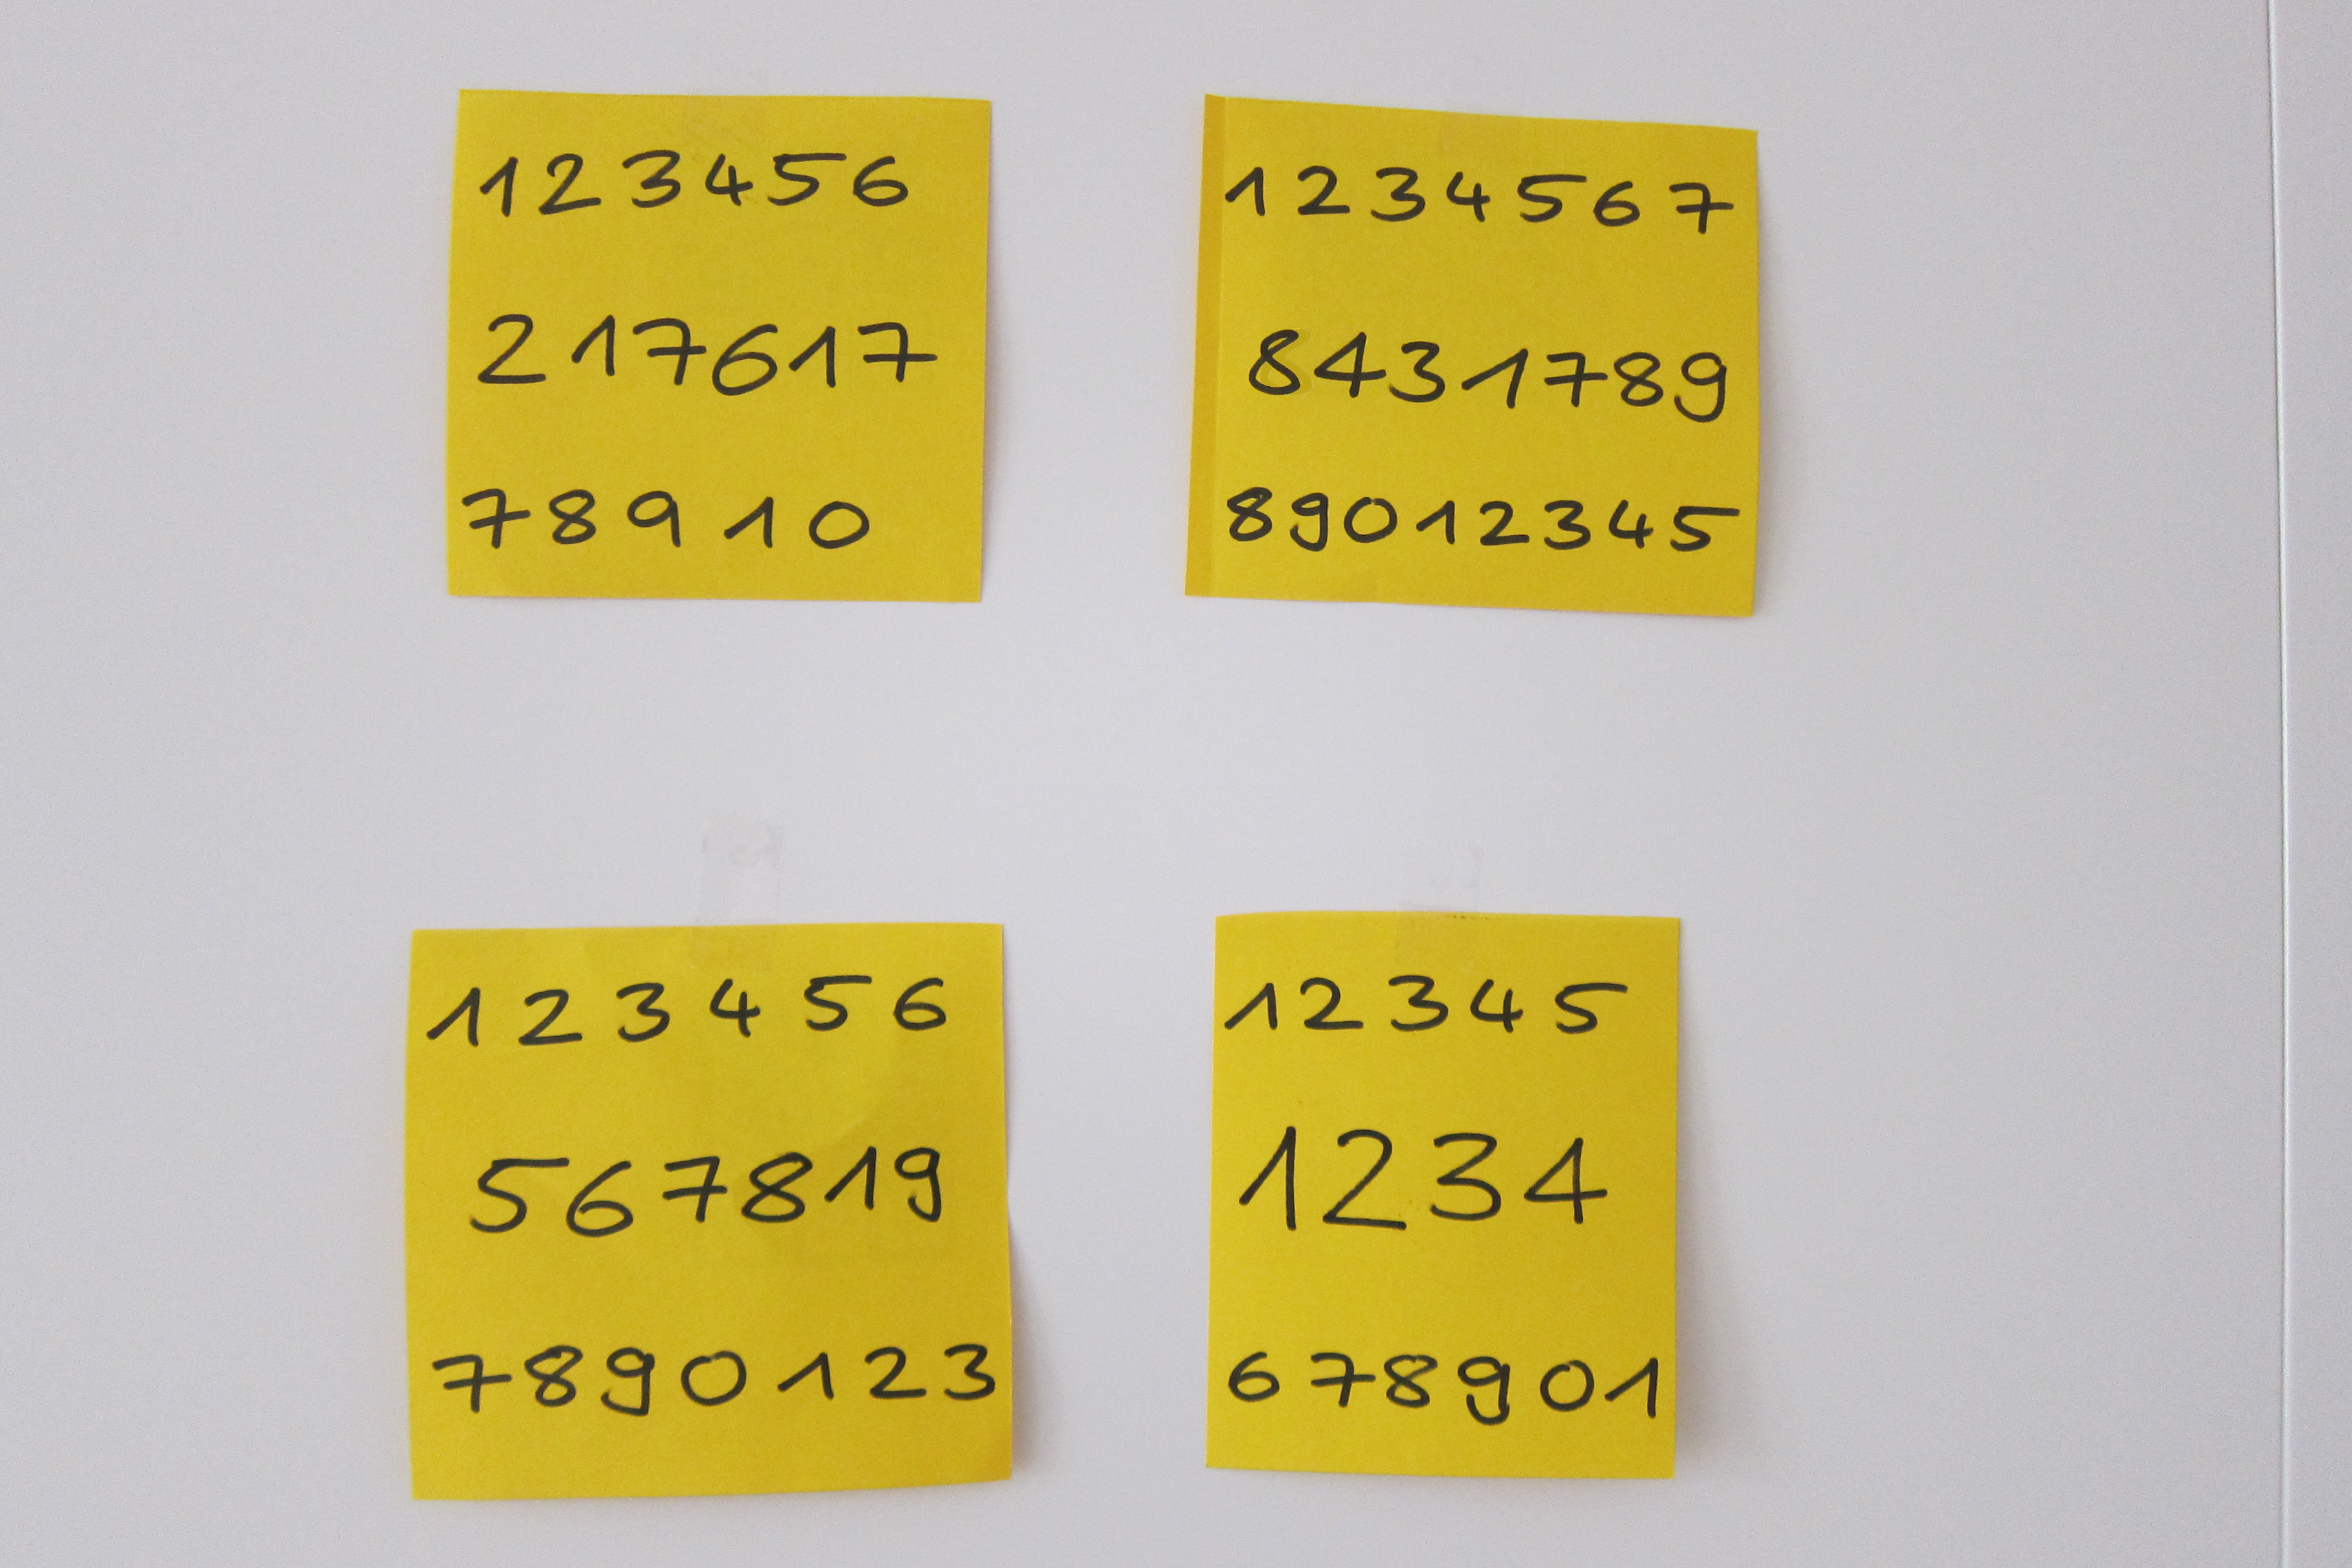 123456
217617
78910
1234567
8431789
89012345
123456
567819
7890123
12345
1234
678901